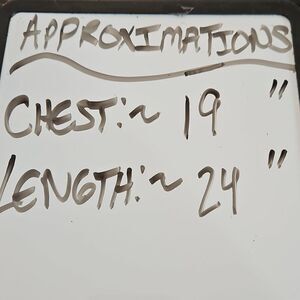 APPROXIMATIONS
CHEST:~ 19"
LENGTH:~ 24"